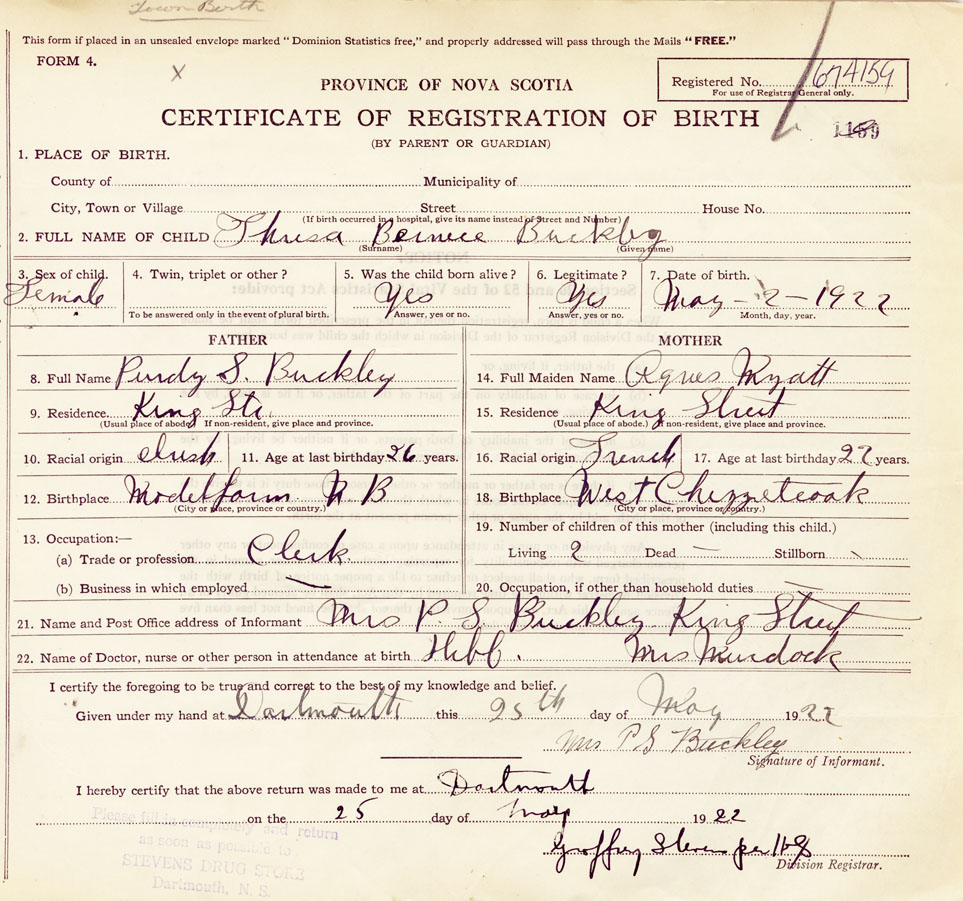 Town Birth
This form if placed in an unsealed envelope marked "Dominion Statistics free," and properly addressed will pass through the Mails "FREE."
FORM 4.
X
PROVINCE OF NOVA SCOTIA
Registered No. 674159
For use of Registrar General only.
CERTIFICATE OF REGISTRATION OF BIRTH
(BY PARENT OR GUARDIAN)
1. PLACE OF BIRTH.
County of Municipality of
City, Town or Village Street House No.
(If birth occurred in a hospital, give its name instead of Street and Number)
2. FULL NAME OF CHILD Thresa Bernice Buckley
(Surname) (Given name)
3. Sex of child. 4. Twin, triplet or other? 5. Was the child born alive? 6. Legitimate? 7. Date of birth.
Female Yes Yes May - 2 - 1922
To be answered only in the event of plural birth. Answer, yes or no. Answer, yes or no. Month, day, year.
FATHER MOTHER
8. Full Name Purdy S. Buckley 14. Full Maiden Name Agnes Myatt
9. Residence King Str. 15. Residence King Street
(Usual place of abode) If non-resident, give place and province. (Usual place of abode.) If non-resident, give place and province.
10. Racial origin Irish 11. Age at last birthday 26 years. 16. Racial origin French 17. Age at last birthday 22 years.
12. Birthplace Model farm N B 18. Birthplace West Chezzetcook
(City or place, province or country.) (City or place, province or country.)
13. Occupation:— 19. Number of children of this mother (including this child.)
(a) Trade or profession Clerk Living 2 Dead — Stillborn
(b) Business in which employed — 20. Occupation, if other than household duties —
21. Name and Post Office address of Informant Mrs P. S. Buckley King Street
22. Name of Doctor, nurse or other person in attendance at birth Hibb. Mrs Murdock
I certify the foregoing to be true and correct to the best of my knowledge and belief.
Given under my hand at Dartmouth this 25th day of May 1922
Mrs P S Buckley
Signature of Informant.
I hereby certify that the above return was made to me at Dartmouth
on the 25 day of May 1922
Please fill in completely and return
as soon as possible to
STEVENS DRUG STORE
Dartmouth, N. S.
Geoffrey Stevens per
Division Registrar.